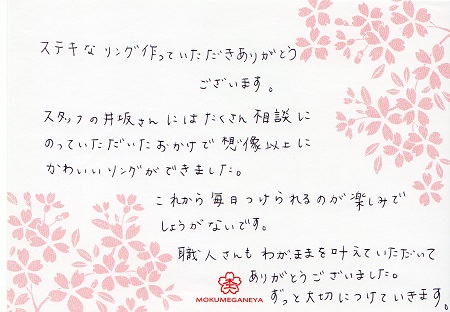 ステキな リング作っていただきありがとう
ございます。
スタッフの井坂さんにはたくさん相談に
のっていただいたおかげで想像以上に
かわいいリングができました。
これから毎日つけられるのが楽しみで
しょうがないです。
職人さんも わがままを叶えていただいて
ありがとうございました。
ずっと大切につけていきます。
MOKUMEGANEYA